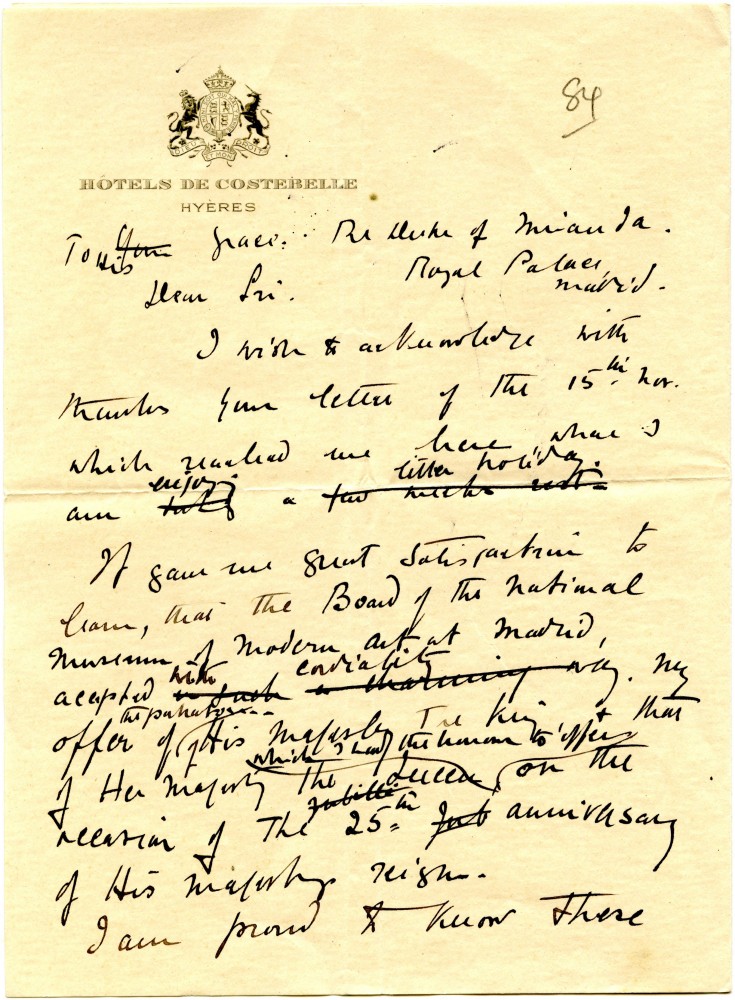 84
DIEU ET MON DROIT
HÔTELS DE COSTEBELLE
HYÈRES
To Your His Grace. The Duke of Miranda.
Royal Palace,
Madrid.
Dear Sir.
I wish to acknowledge with
thanks your letter of the 15th Nov.
which reached me here where I
enjoy little holiday.
am taking a few weeks rest.
It gave me great satisfaction to
learn, that the Board of the National
Museum of Modern Art at Madrid,
with cordiality
accepted in such a charming way. my
the portraits
offer of of His Majesty The King & that
which I had the honour to offer
of Her Majesty the Queen, on the
Jubilee
occasion of The 25th Jub anniversary
of His Majestys reign.
I am proud to know these